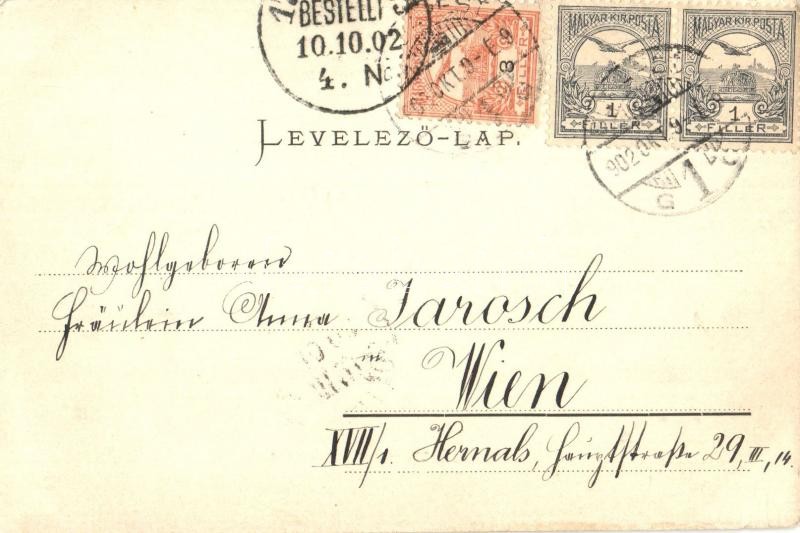 BESTELLT
10.10.02
4. N.
MAGYAR KIR. POSTA
MAGYAR KIR. POSTA
3
1
FILLÉR
1
FILLÉR
LEVELEZŐ-LAP.
Wohlgeboren
Fräulein Anna Jarosch
in
Wien
XVII/1. Hernals, Hauptstraße 29, III, 14.